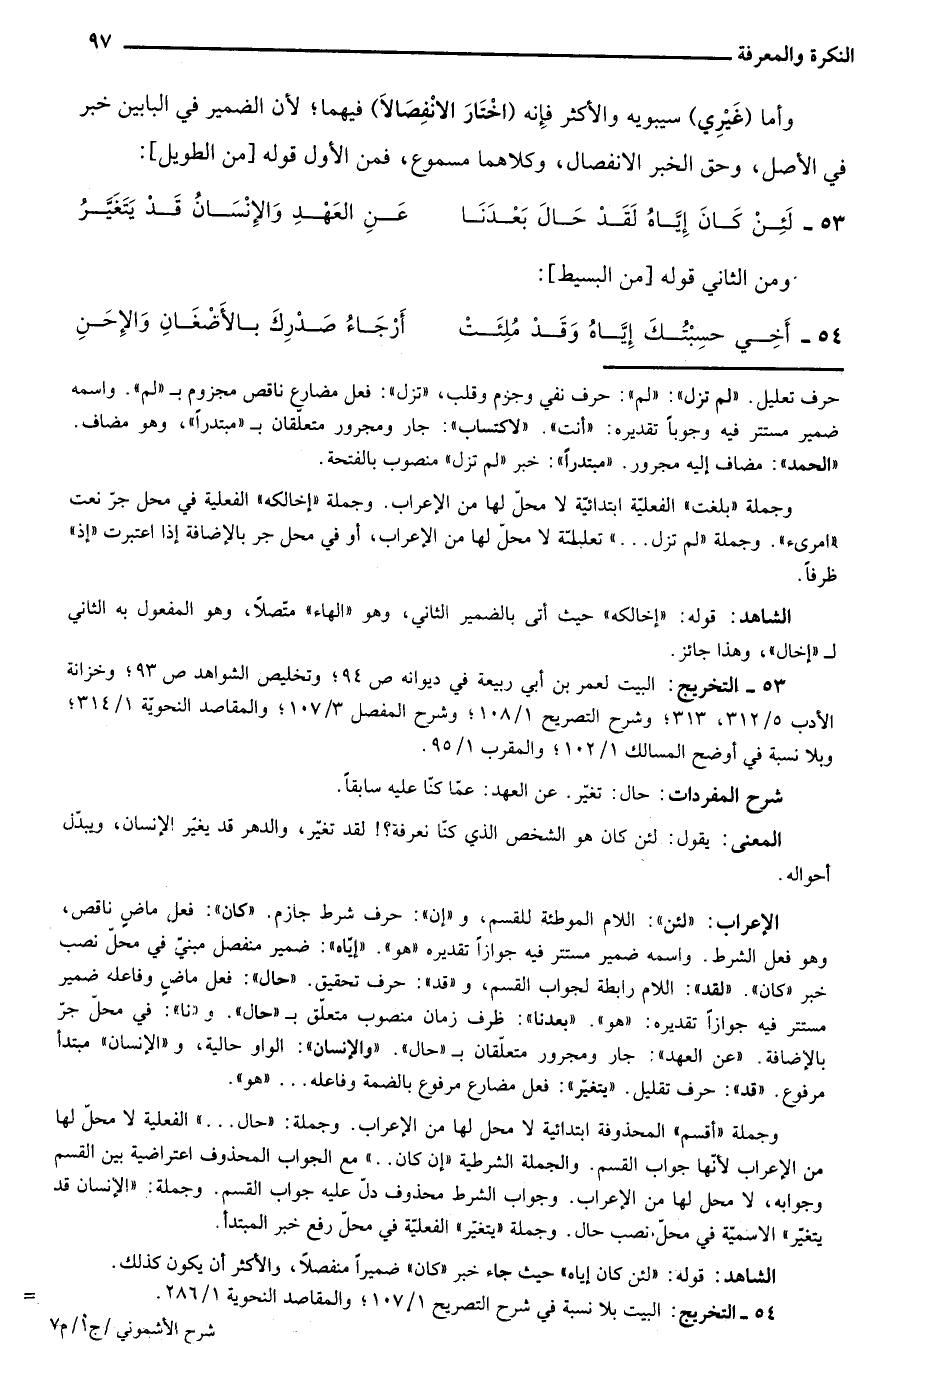 النكرة والمعرفة ٩٧
وأما (غَيْرِي) سيبويه والأكثر فإنه (اخْتَارَ الانْفِصَالاَ) فيهما؛ لأن الضمير في البابين خبر
في الأصل، وحق الخبر الانفصال، وكلاهما مسموع، فمن الأول قوله [من الطويل]:
٥٣ ـ لَئِنْ كَانَ إِيَّاهُ لَقَدْ حَالَ بَعْدَنَا عَنِ العَهْدِ وَالإِنْسَانُ قَدْ يَتَغَيَّرُ
ومن الثاني قوله [من البسيط]:
٥٤ ـ أَخِي حسِبْتُكَ إِيَّاهُ وَقَدْ مُلِئَتْ أَرْجَاءُ صَدْرِكَ بِالأَضْغَانِ وَالإِحَنِ
حرف تعليل. «لم تزل»: «لم»: حرف نفي وجزم وقلب، «تزل»: فعل مضارع ناقص مجزوم بـ «لم». واسمه
ضمير مستتر فيه وجوباً تقديره: «أنت». «لاكتساب»: جار ومجرور متعلّقان بـ «مبتدراً»، وهو مضاف.
«الحمد»: مضاف إليه مجرور. «مبتدراً»: خبر «لم تزل» منصوب بالفتحة.
وجملة «بلغت» الفعليّة ابتدائيّة لا محلّ لها من الإعراب. وجملة «إخالكه» الفعلية في محل جرّ نعت
«امرىء». وجملة «لم تزل...» تعليليّة لا محلّ لها من الإعراب، أو في محل جر بالإضافة إذا اعتبرت «إذ»
ظرفاً.
الشاهد: قوله: «إخالكه» حيث أتى بالضمير الثاني، وهو «الهاء» متّصلاً، وهو المفعول به الثاني
لـ «إخال»، وهذا جائز.
٥٣ ـ التخريج: البيت لعمر بن أبي ربيعة في ديوانه ص ٩٤؛ وتخليص الشواهد ص ٩٣؛ وخزانة
الأدب ٣١٢/٥، ٣١٣؛ وشرح التصريح ١٠٨/١؛ وشرح المفصل ١٠٧/٣؛ والمقاصد النحويّة ٣١٤/١؛
وبلا نسبة في أوضح المسالك ١٠٢/١؛ والمقرب ٩٥/١.
شرح المفردات: حال: تغيّر. عن العهد: عمّا كنّا عليه سابقاً.
المعنى: يقول: لئن كان هو الشخص الذي كنّا نعرفة؟! لقد تغيّر، والدهر قد يغيّر الإنسان، ويبدّل
أحواله.
الإعراب: «لئن»: اللام الموطئة للقسم، و «إن»: حرف شرط جازم. «كان»: فعل ماضٍ ناقص،
وهو فعل الشرط. واسمه ضمير مستتر فيه جوازاً تقديره «هو». «إيّاه»: ضمير منفصل مبنيّ في محلّ نصب
خبر «كان». «لقد»: اللام رابطة لجواب القسم، و «قد»: حرف تحقيق. «حال»: فعل ماضٍ وفاعله ضمير
مستتر فيه جوازاً تقديره: «هو». «بعدنا»: ظرف زمان منصوب متعلّق بـ «حال». و «نا»: في محلّ جرّ
بالإضافة. «عن العهد»: جار ومجرور متعلّقان بـ «حال». «والإنسان»: الواو حالية، و «الإنسان» مبتدأ
مرفوع. «قد»: حرف تقليل. «يتغيّر»: فعل مضارع مرفوع بالضمة وفاعله... «هو».
وجملة «أقسم» المحذوفة ابتدائية لا محل لها من الإعراب. وجملة: «حال...» الفعلية لا محلّ لها
من الإعراب لأنّها جواب القسم. والجملة الشرطية «إن كان..» مع الجواب المحذوف اعتراضية بين القسم
وجوابه، لا محل لها من الإعراب. وجواب الشرط محذوف دلّ عليه جواب القسم. وجملة: «الإنسان قد
يتغيّر» الاسميّة في محلّ نصب حال. وجملة «يتغيّر» الفعليّة في محلّ رفع خبر المبتدأ.
الشاهد: قوله: «لئن كان إياه» حيث جاء خبر «كان» ضميراً منفصلاً، والأكثر أن يكون كذلك.
٥٤ ـ التخريج: البيت بلا نسبة في شرح التصريح ١٠٧/١؛ والمقاصد النحوية ٢٨٦/١. =
شرح الأشموني /ج أ/ م٧